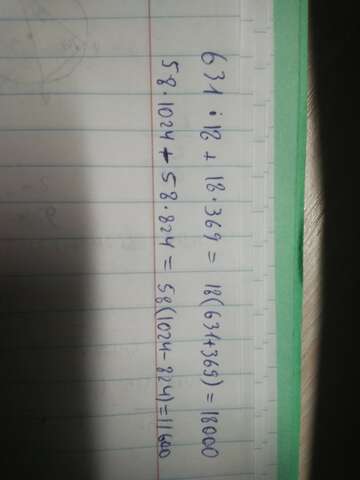 631 · 18 + 18 · 369 = 18(631+369) = 18000
58 · 1024 + 58 · 824 = 58(1024 - 824) = 11600